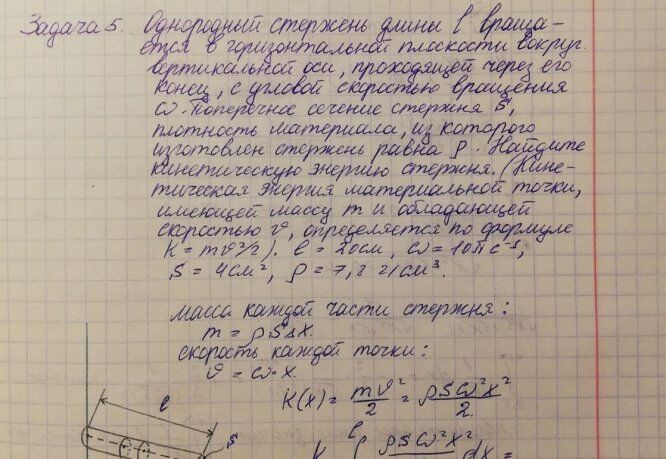 Задача 5. Однородный стержень длины l враща-
ется в горизонтальной плоскости вокруг
вертикальной оси, проходящей через его
конец, с угловой скоростью вращения
ω. Поперечное сечение стержня S,
плотность материала, из которого
изготовлен стержень равна ρ. Найдите
кинетическую энергию стержня. (Кине-
тическая энергия материальной точки,
имеющей массу m и обладающей
скоростью v, определяется по формуле
K = mv²/2). l = 20см, ω = 10π с⁻¹,
S = 4см², ρ = 7,8 г/см³.
масса каждой части стержня:
m = ρSΔx.
скорость каждой точки:
v = ω·x.
K(x) = mv²/2 = ρSω²x²/2.
l
S
l
K ∫ ρSω²x² dx =